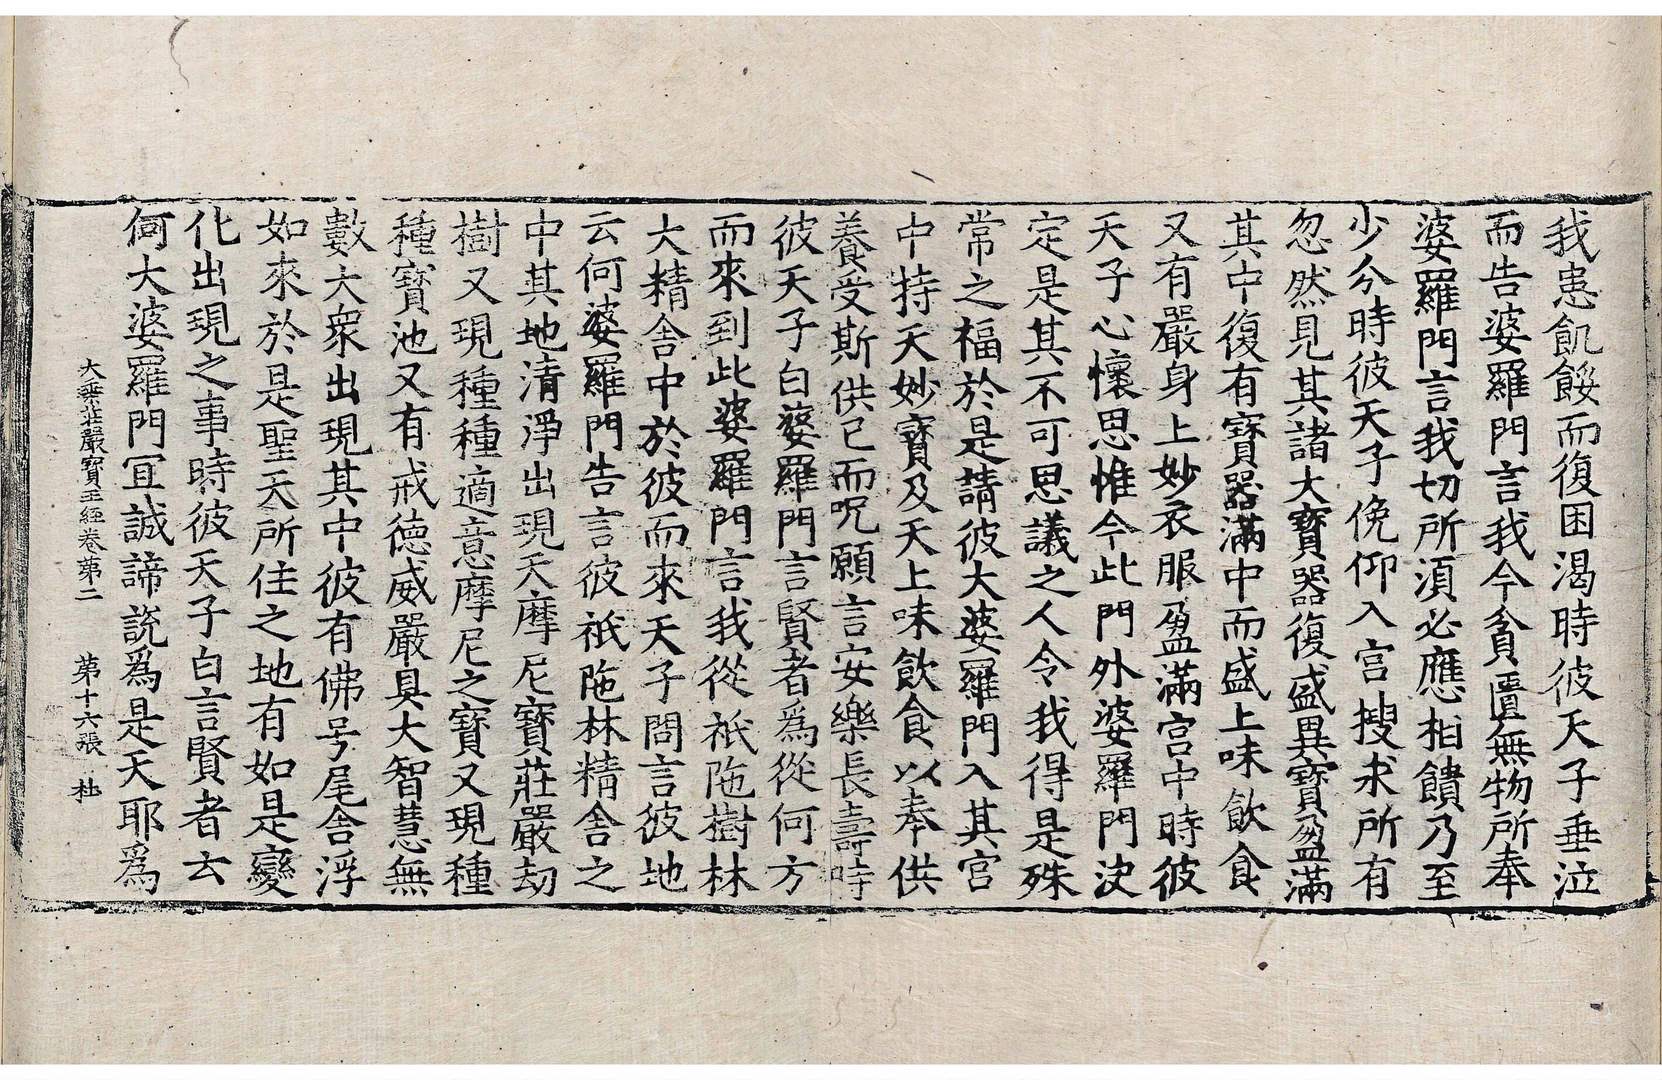 我患飢餒而復困渴時彼天子垂泣
而告婆羅門言我今貧匱無物所奉
婆羅門言我切所湏必應相饋乃至
少分時彼天子俛仰入宮搜求所有
忽然見其諸大寶器復盛異寶盈滿
其中復有寶器滿中而盛上味飲食
又有嚴身上妙衣服盈滿宮中時彼
天子心懷思惟今此門外婆羅門決
定是其不可思議之人令我得是殊
常之福於是請彼大婆羅門入其宮
中持天妙寶及天上味飲食以奉供
養受斯供已而呪願言安樂長壽時
彼天子白婆羅門言賢者爲從何方
而來到此婆羅門言我從祇陁樹林
大精舍中於彼而來天子問言彼地
云何婆羅門告言彼祇陁林精舍之
中其地清淨出現天摩尼寶莊嚴劫
樹又現種種適意摩尼之寶又現種
種寶池又有戒德威嚴具大智慧無
數大衆出現其中彼有佛号尾舍浮
如來於是聖天所住之地有如是變
化出現之事時彼天子白言賢者云
何大婆羅門冝誠諦說爲是天耶爲
大乘莊嚴寶王經卷第二 第十六張 杜